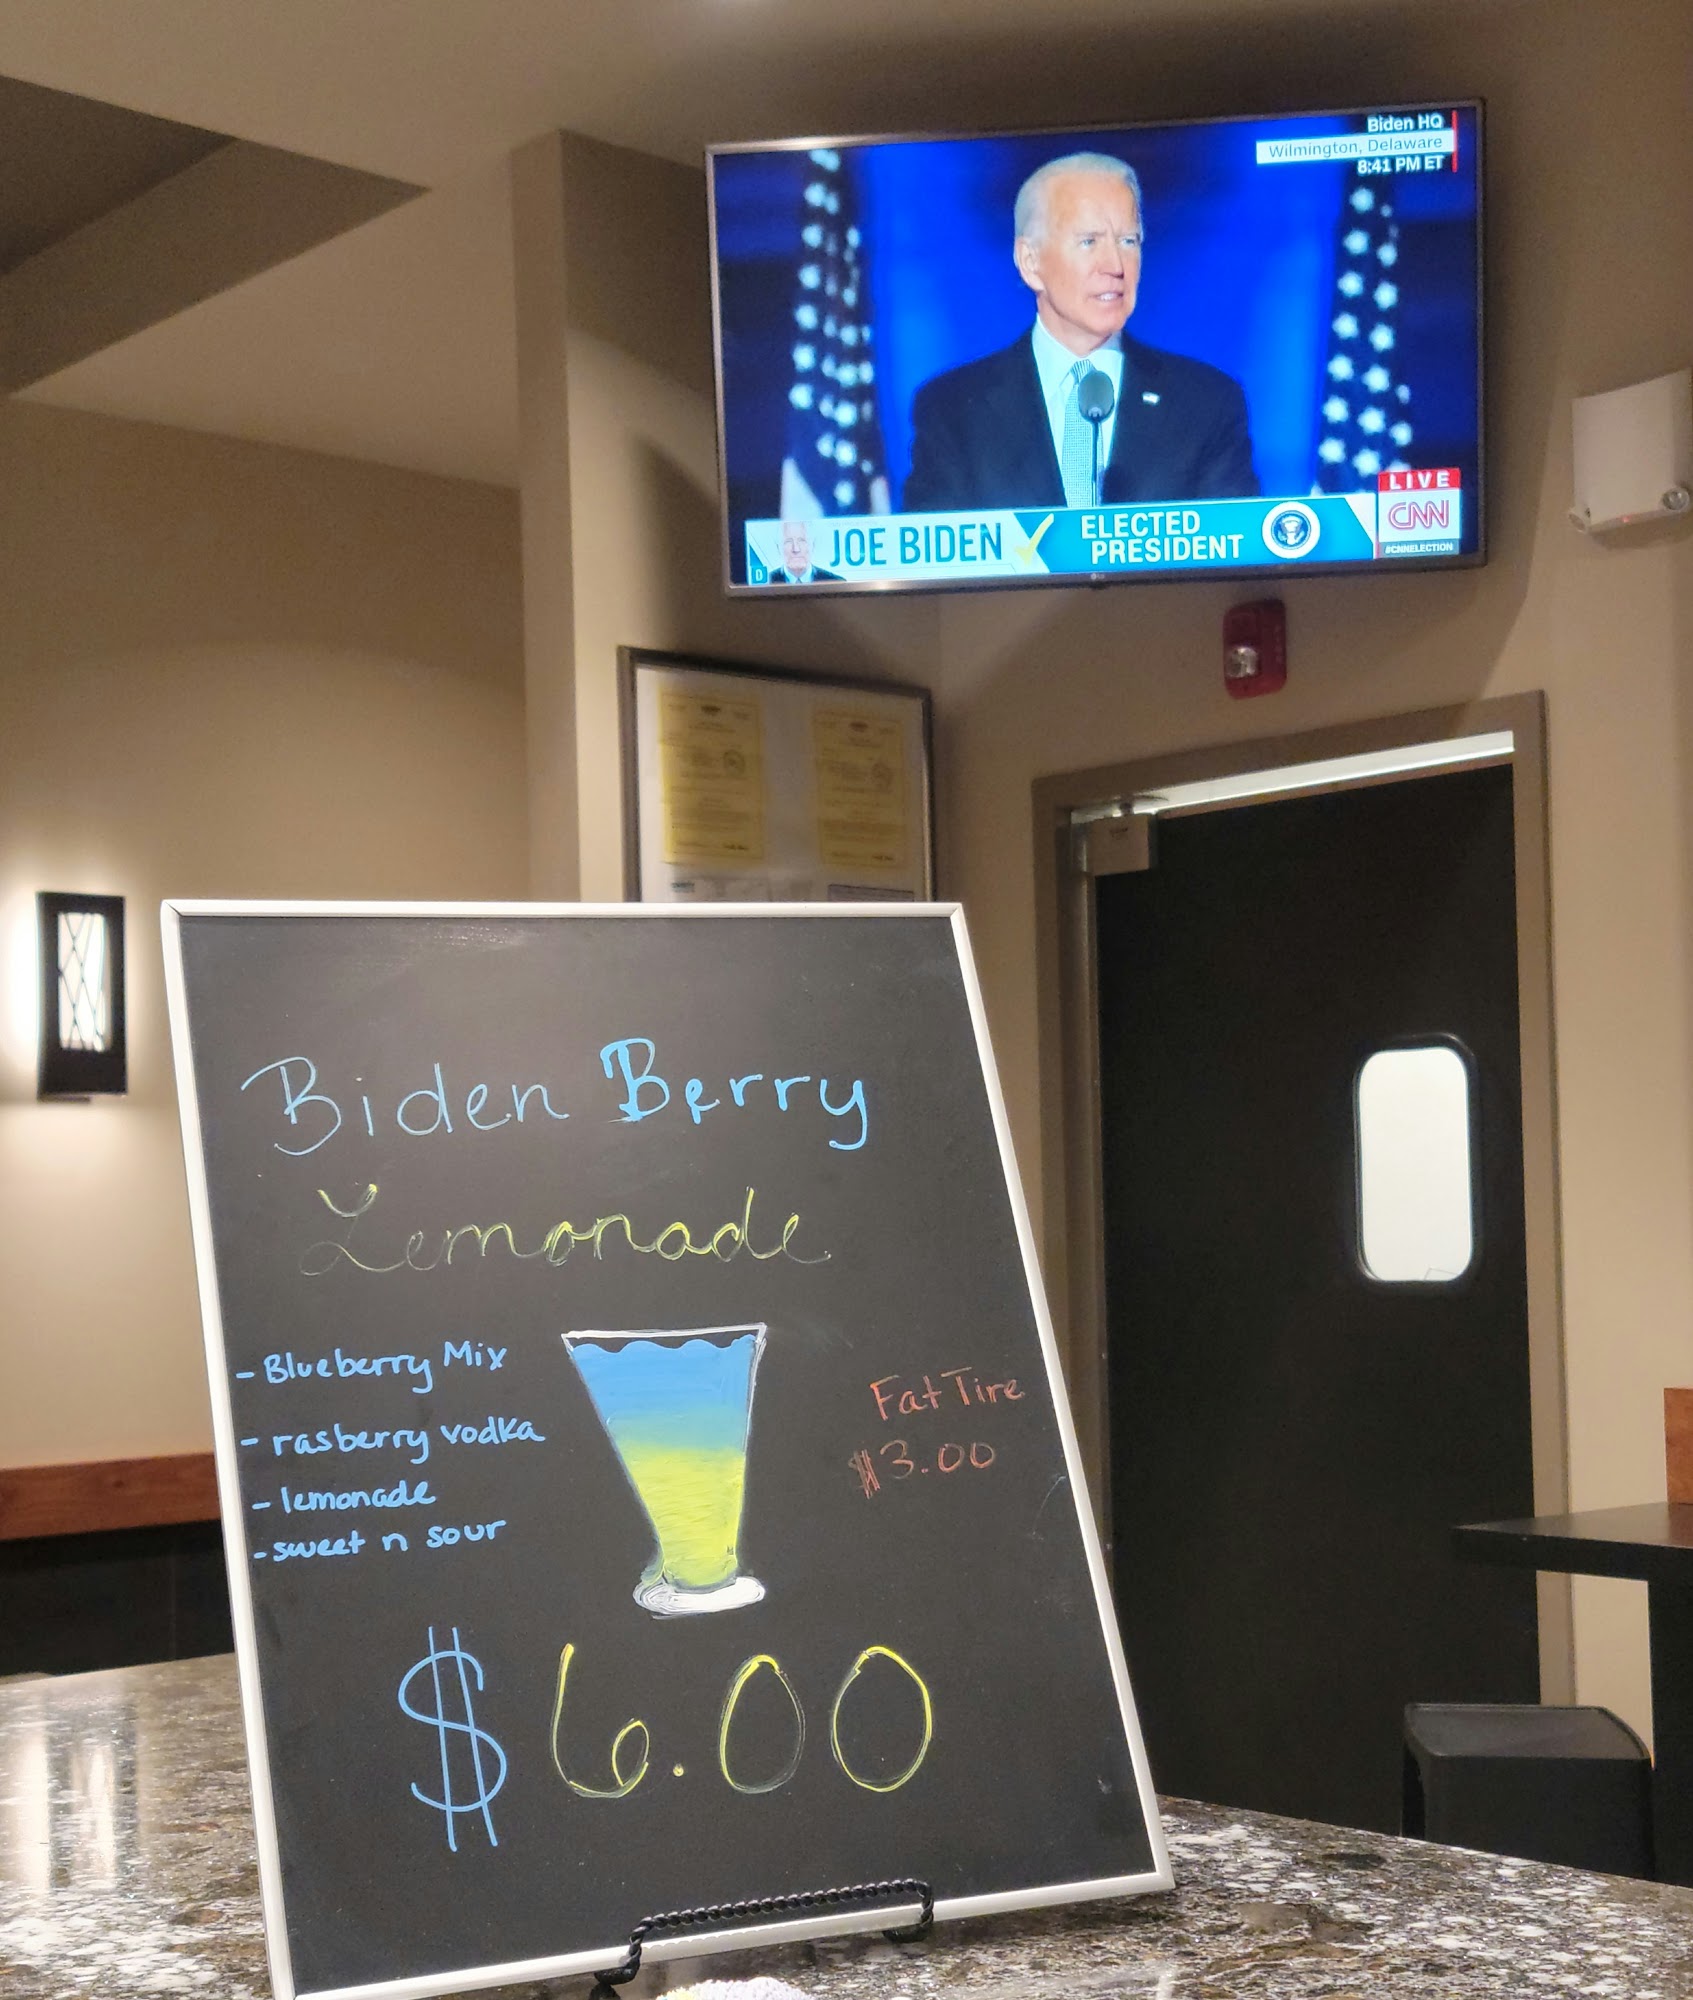 Biden HQ
Wilmington, Delaware
8:41 PM ET
LIVE
CNN
#CNNELECTION
D
JOE BIDEN
ELECTED
PRESIDENT
LG
Biden Berry
Lemonade
- Blueberry Mix
- rasberry vodka
- lemonade
- sweet n sour
Fat Tire
$3.00
$6.00